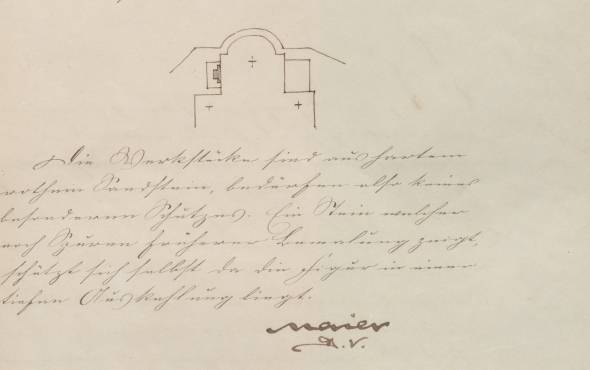 Die Werkstücke sind aus hartem
rothem Sandstein, bedürfen also keines
besonderen Schutzes. Ein Stein welcher
noch Spuren früherer Bemalung zeigt,
schützt sich selbst da die Figur in einer
tiefen Auskehlung liegt.
Maier
A.V.